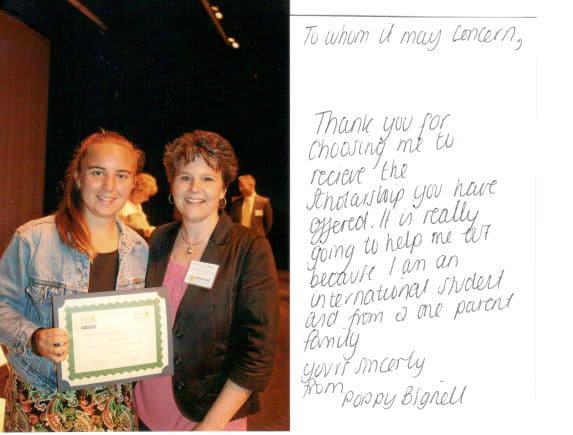 To whom it may concern,
Thank you for
choosing me to
recieve the
scholarship you have
offered. It is really
going to help me out
because I am an
international student
and from a one parent
family
from
Poppy Bignell